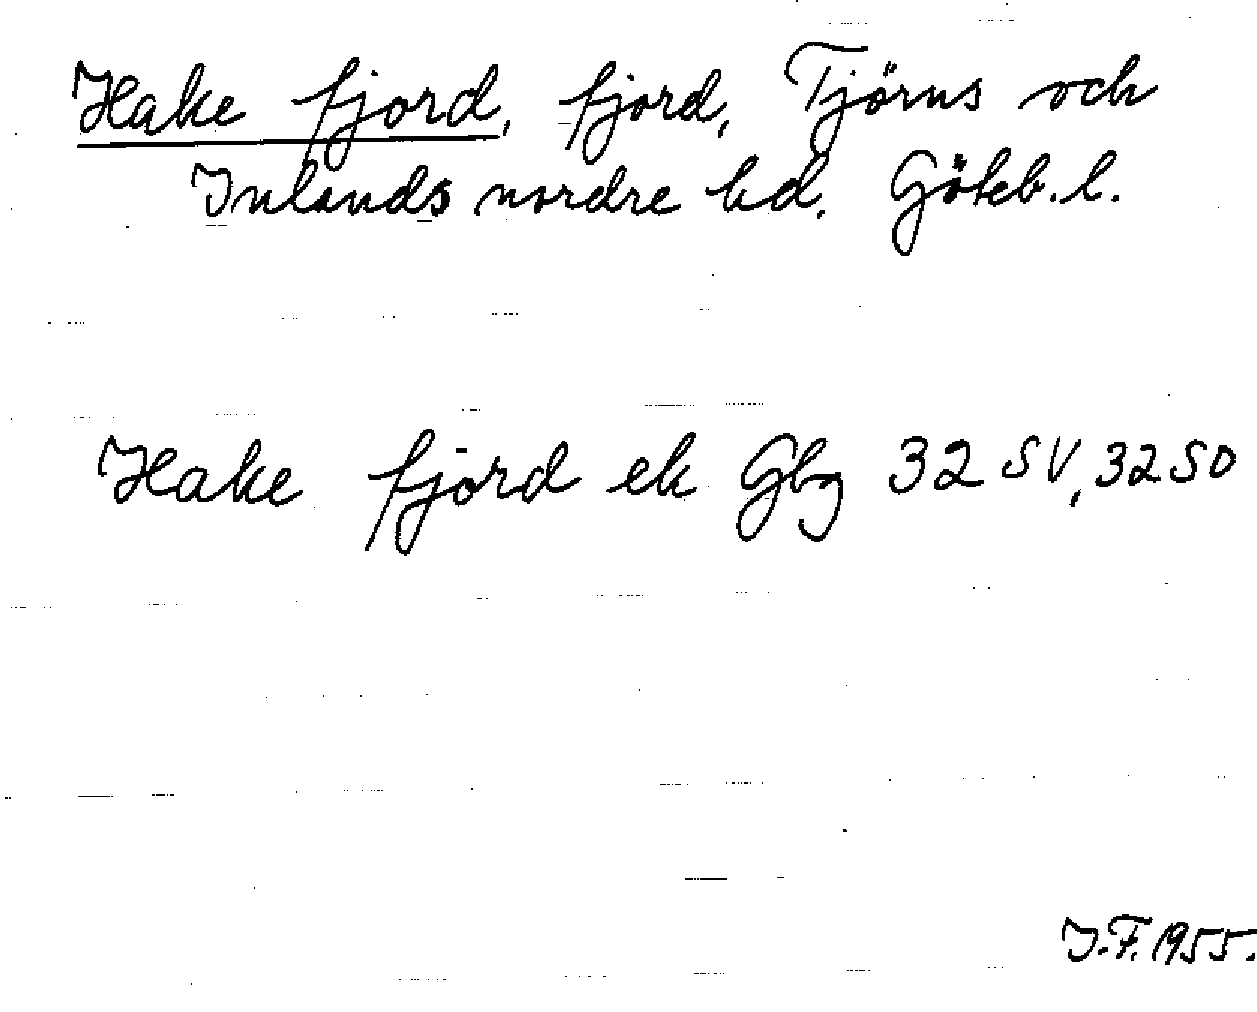 Hake fjord, fjord, Tjörns och
Inlands nordre hd. Göteb. l.
Hake fjord ek Gbg 32 SV, 32 SO
J.F. 1955.